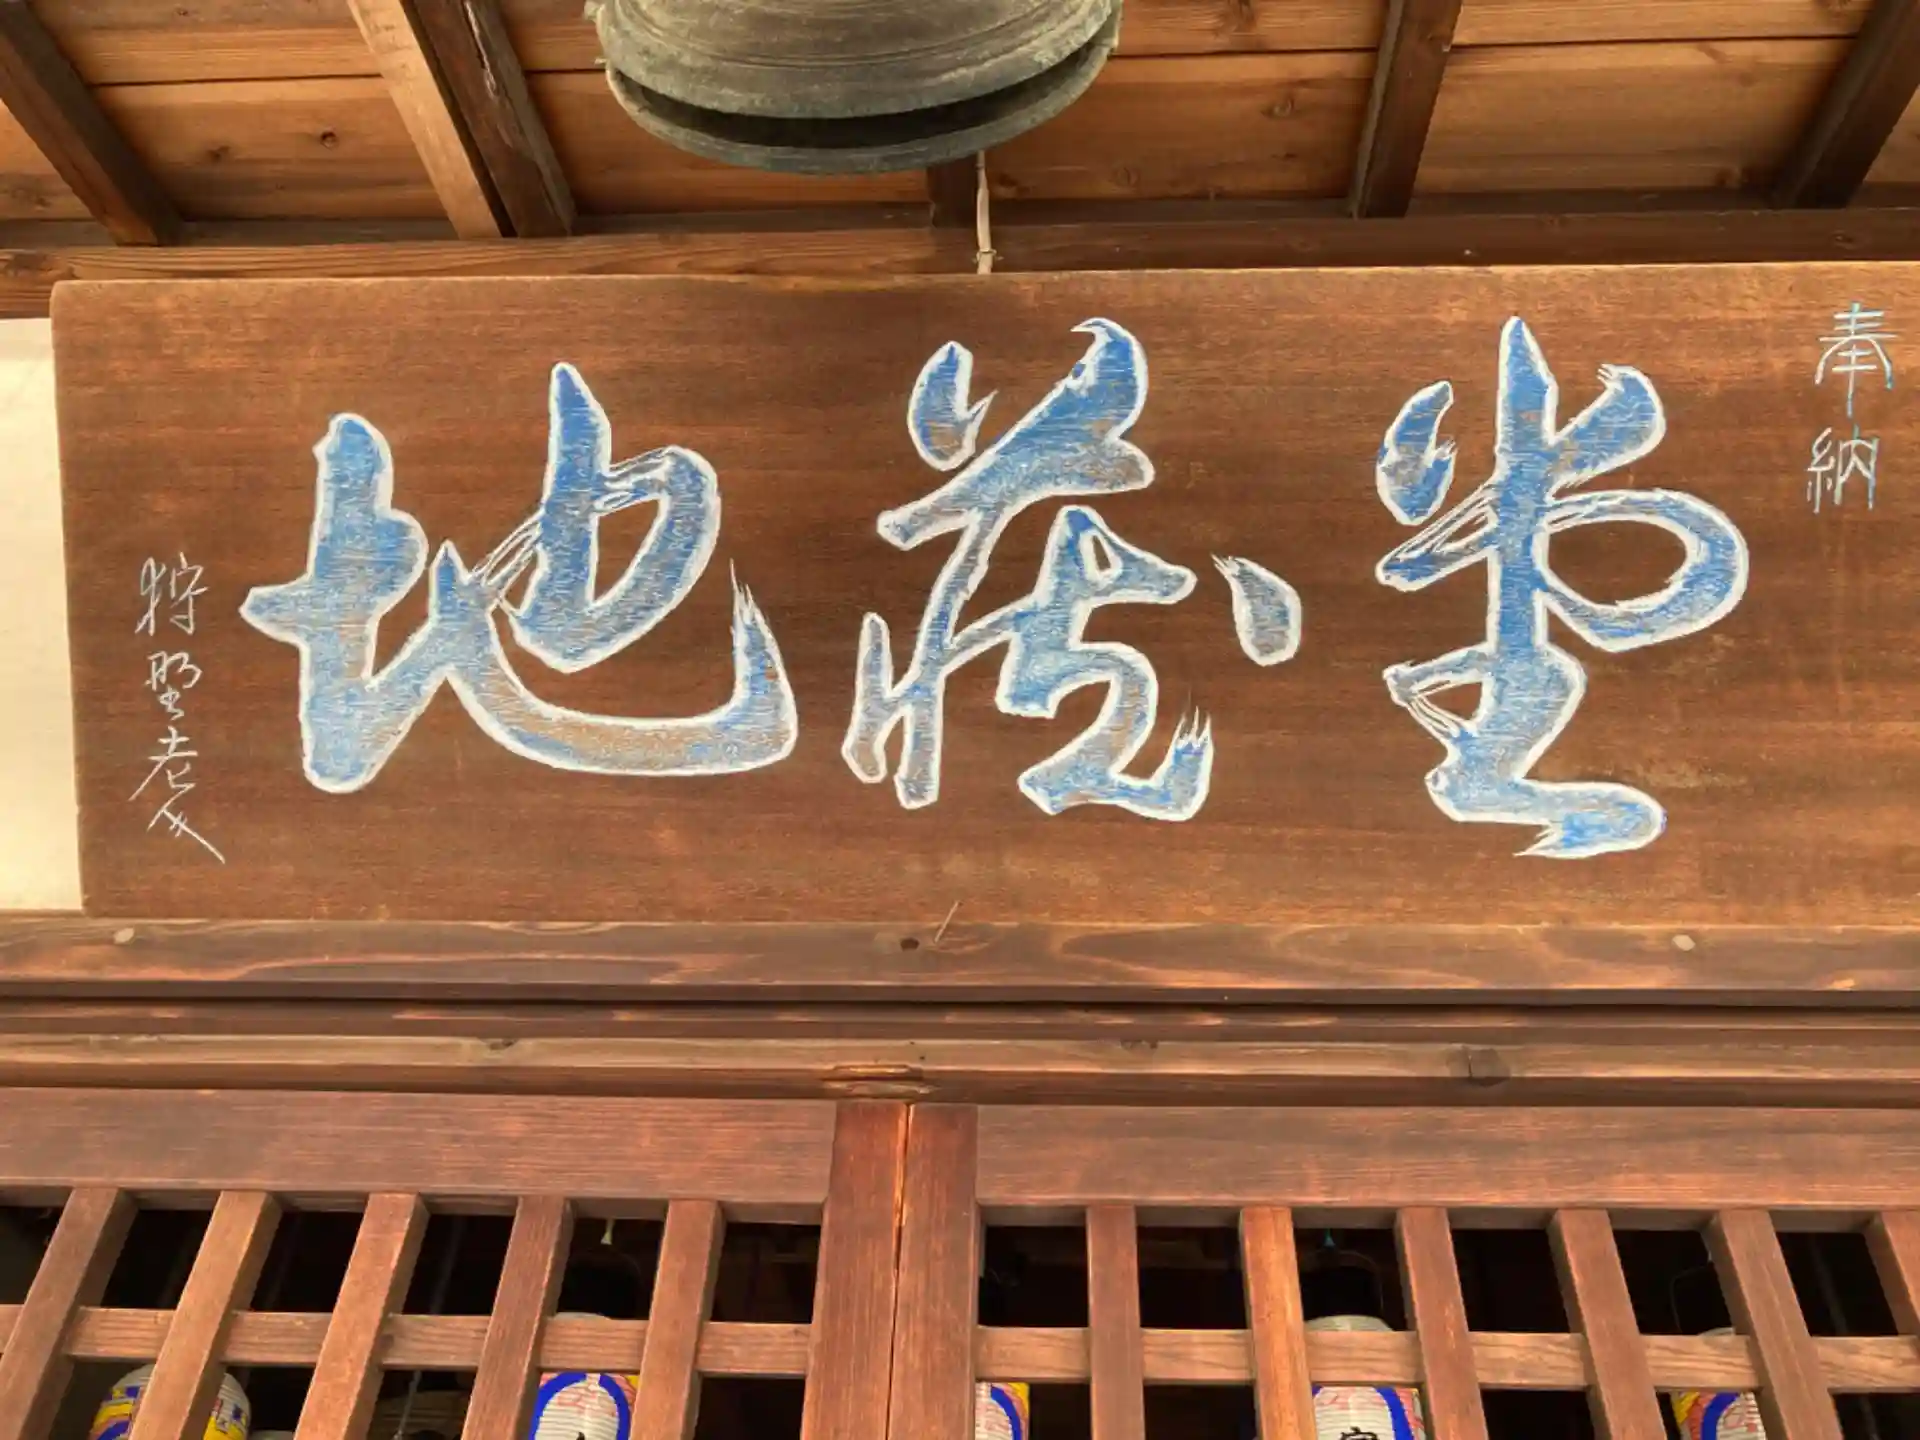 奉納
地蔵堂
狩野老